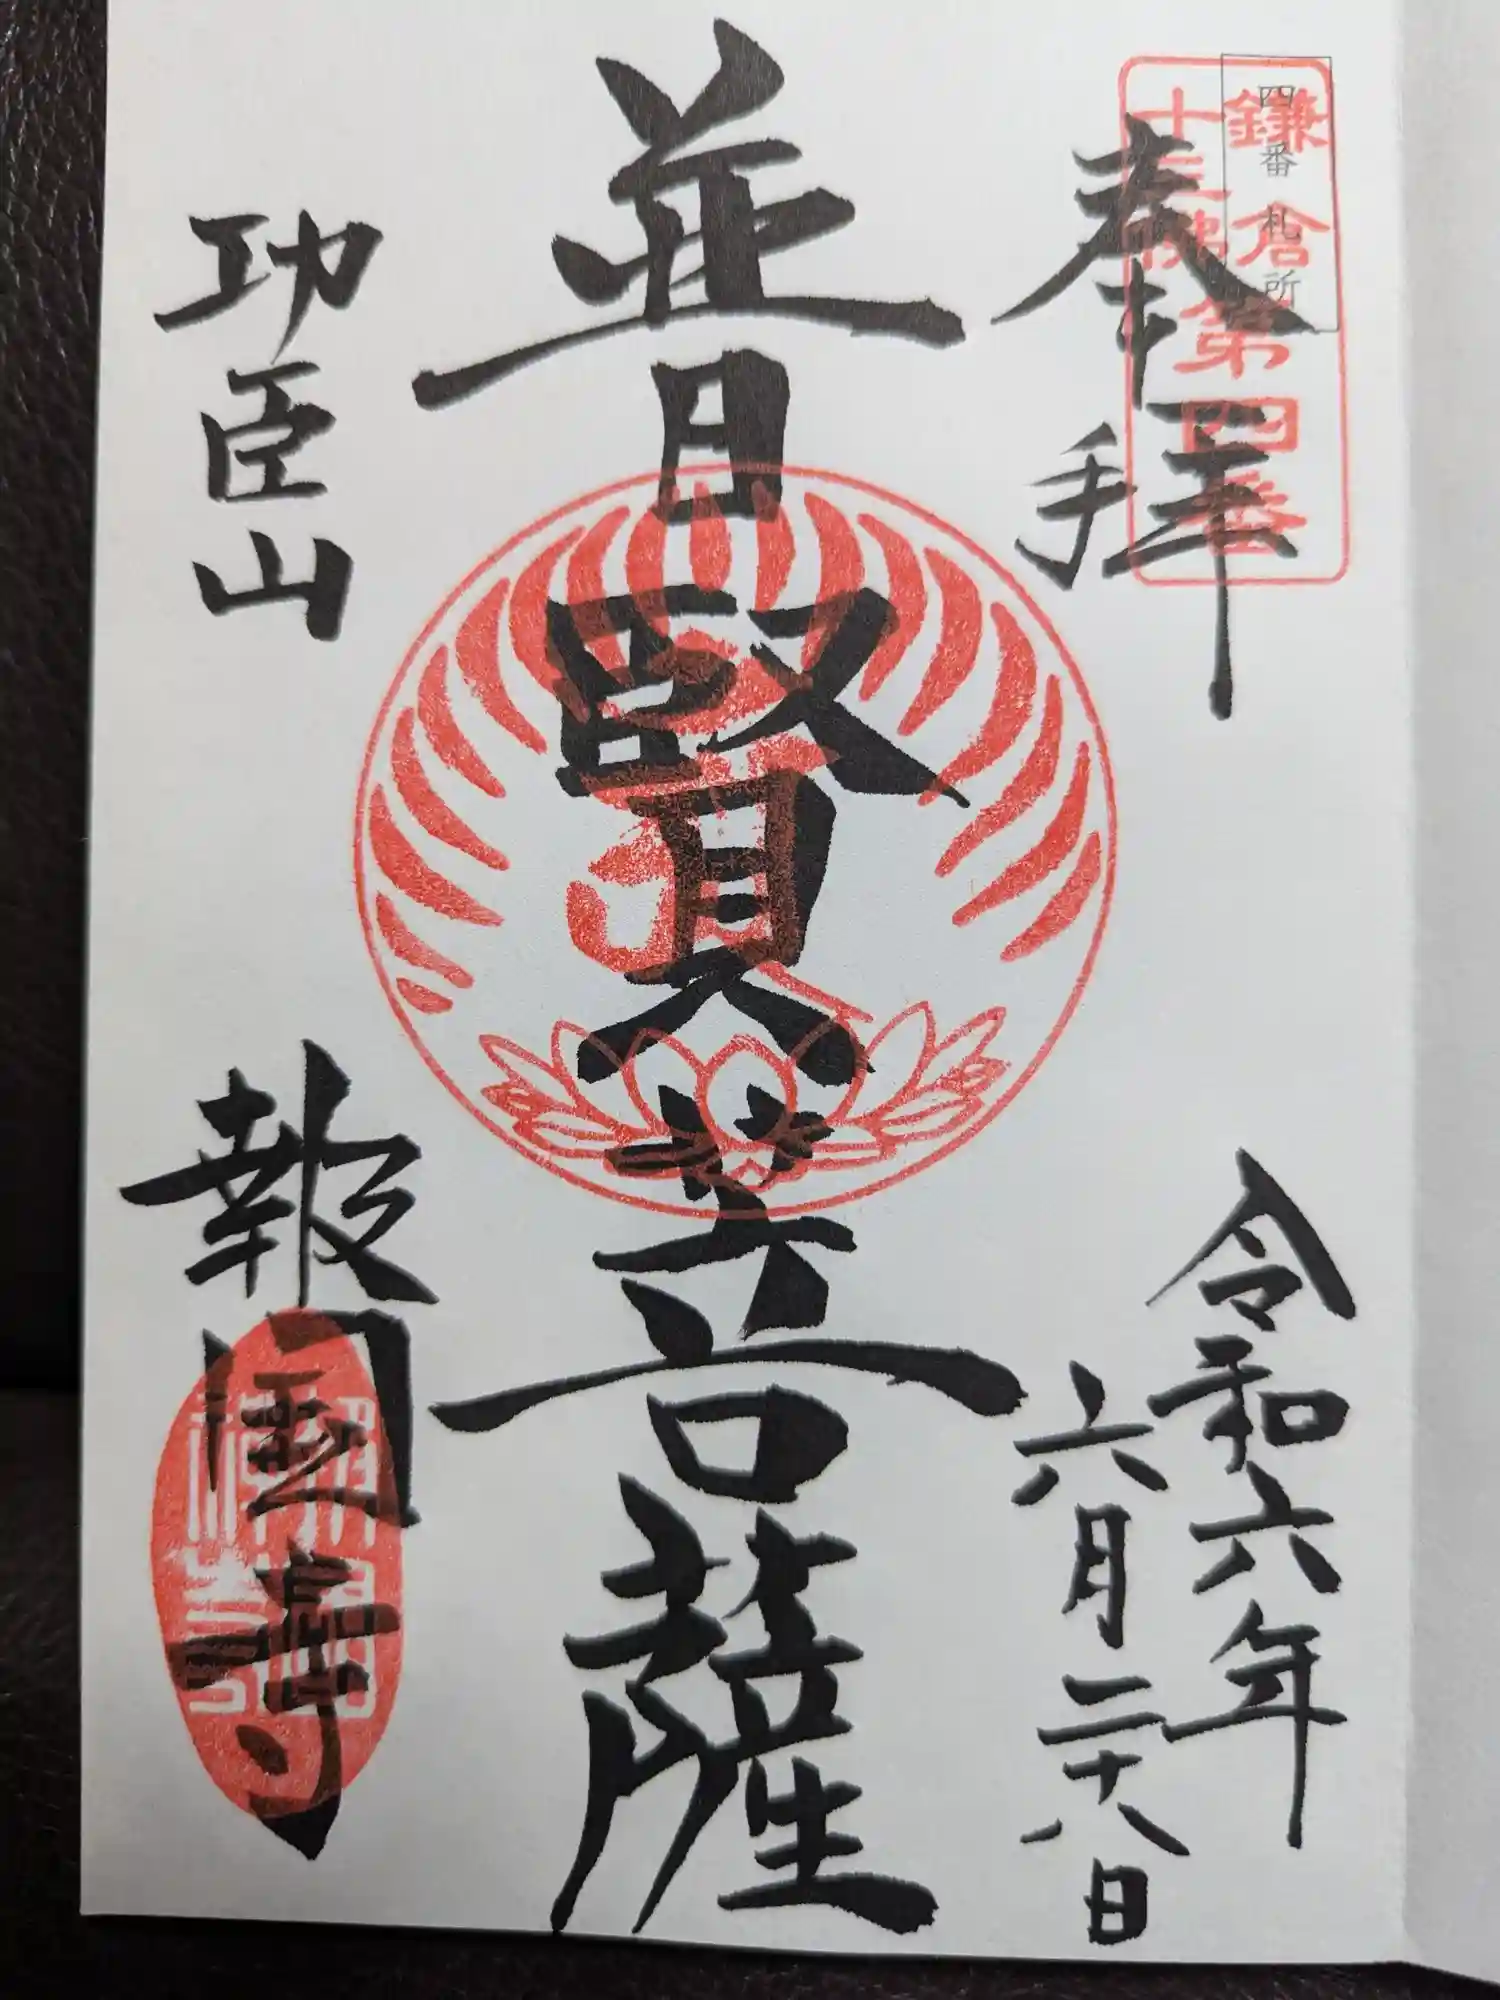 四番札所
鎌倉
十三佛
第四番
奉拝
令和六年
六月二十八日
普賢菩薩
功臣山
報国寺